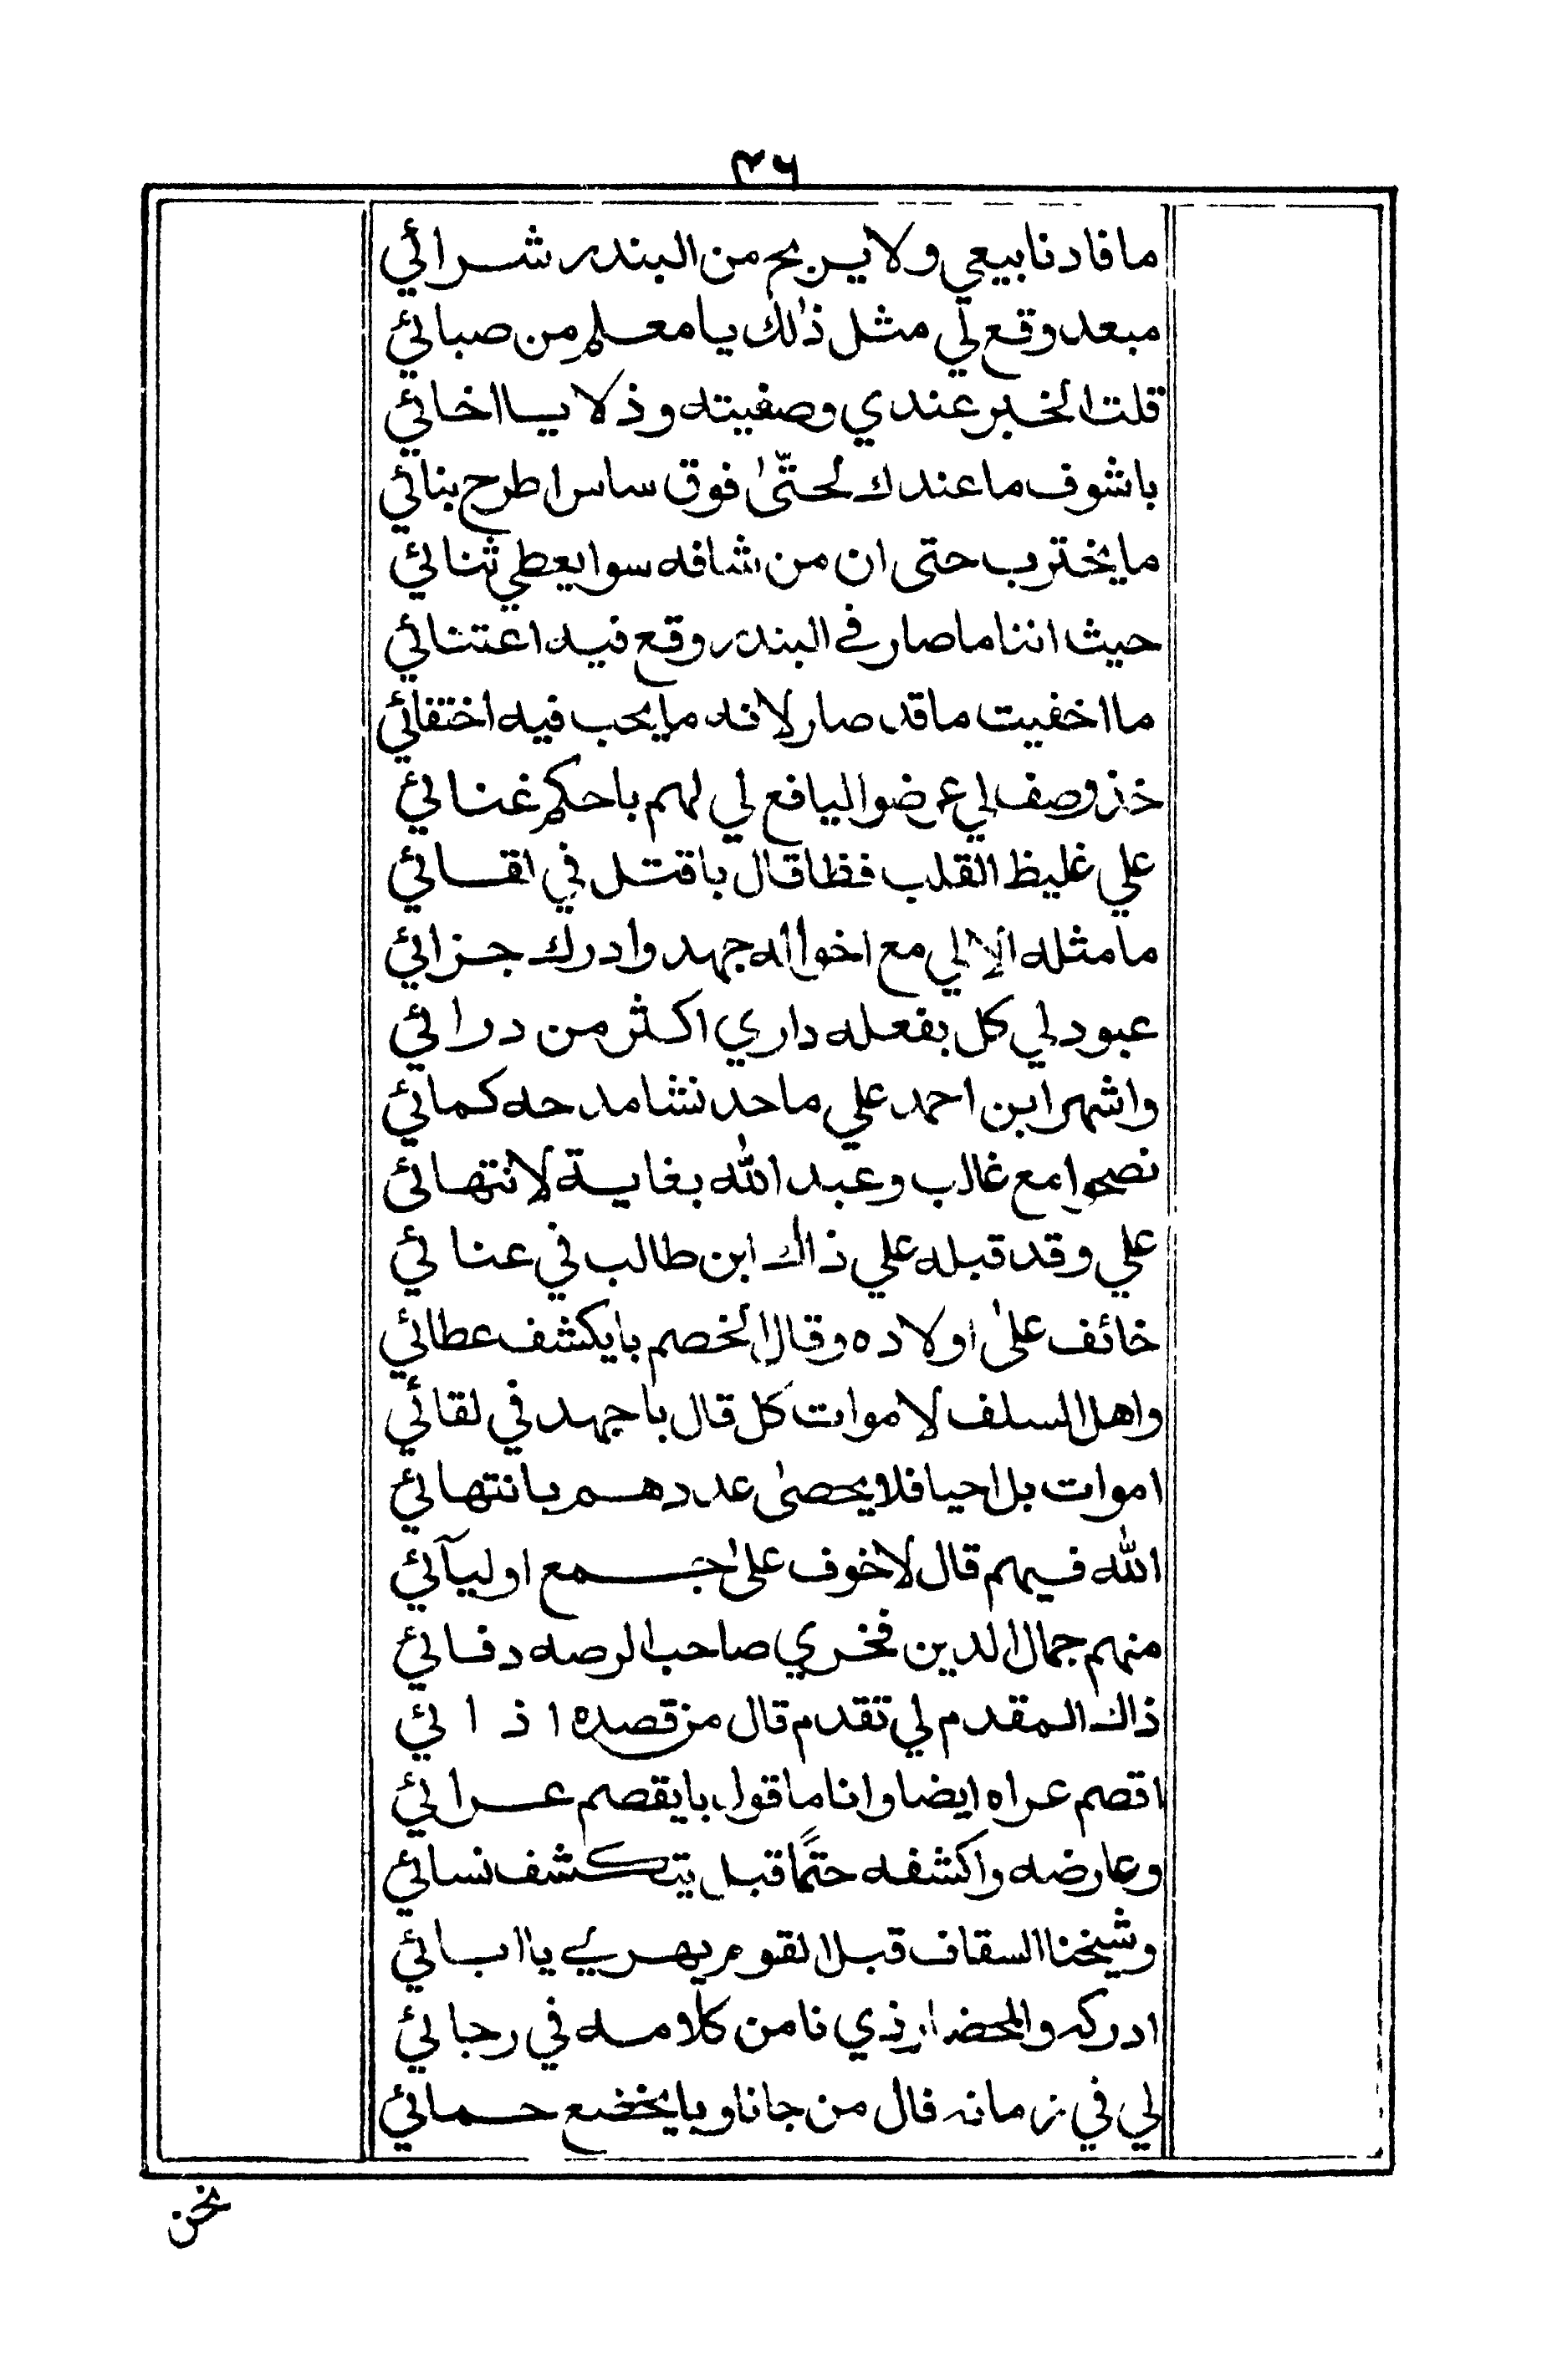 ٣٦
ما فادنا بيعي ولا يربح من البندر شرائي
مبعد وقع لي مثل ذالك يا معلم من صبائي
قلت الخبر عندي وصفيته وذلا يا اخائي
باشوف ما عندك لحتّى فوق ساس اطرح بنائي
ما يخترب حتى ان من شافه سوا يعطي ثنائي
حيث اننا ما صار في البندر وقع فيه اعتنائي
ما اخفيت ما قد صار لانه ما يحب فيه اختفائي
خذ وصف لي عرضوا اليافع لي لهم باحكم غنائي
علي غليظ القلب فظا قال باقتل في اقائي
ما مثله الا لي مع اخواله جهد وادرك جزائي
عبود لي كل بفعله داري اكثر من درائي
واشهر ابن احمد علي ما حد نشا مدحه كمائي
نصحوا مع غالب وعبد الله بغاية لانتهائي
علي وقد قبله علي ذاك ابن طالب في عنائي
خائف على اولاده وقال الخصم بايكشف عطائي
واهل السلف لاموات كل قال باجهد في لقائي
اموات بل احيا فلا يحصى عددهم بانتهائي
الله فيهم قال لا خوف على جمع اوليآئي
منهم جمال الدين فخري صاحب الرصه دفائي
ذاك المقدم لي تقدم قال من قصده اذائي
اقصم عراه ايضا وانا ما قول بايقصم عرائي
وعارضه واكشفه حتمًا قبل يتكشف نسائي
وشيخنا السقاف قبل القوم يهربي يا ابائي
ادركه والمحضار ذي نا من كلامه في رجائي
لي في زمانه قال من جانا وبايخضع حمائي
نحن